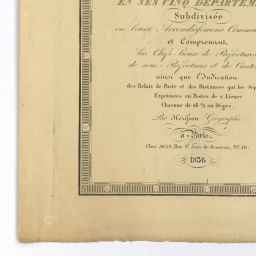 EN SES CINQ DÉPARTEM
Subdivisée
en leurs Arrondissemens Commun
et Comprenant,
les Chefs-lieux de Préfectures
de sous-Préfectures et de Canton
ainsi que l'Indication
des Relais de Poste et des Distances qui les Sép
Exprimées en Postes de 2 Lieues
Chacune de 28 ⅕ au Dégré.
Par Géographe
à Paris,
Chez Rue
1836